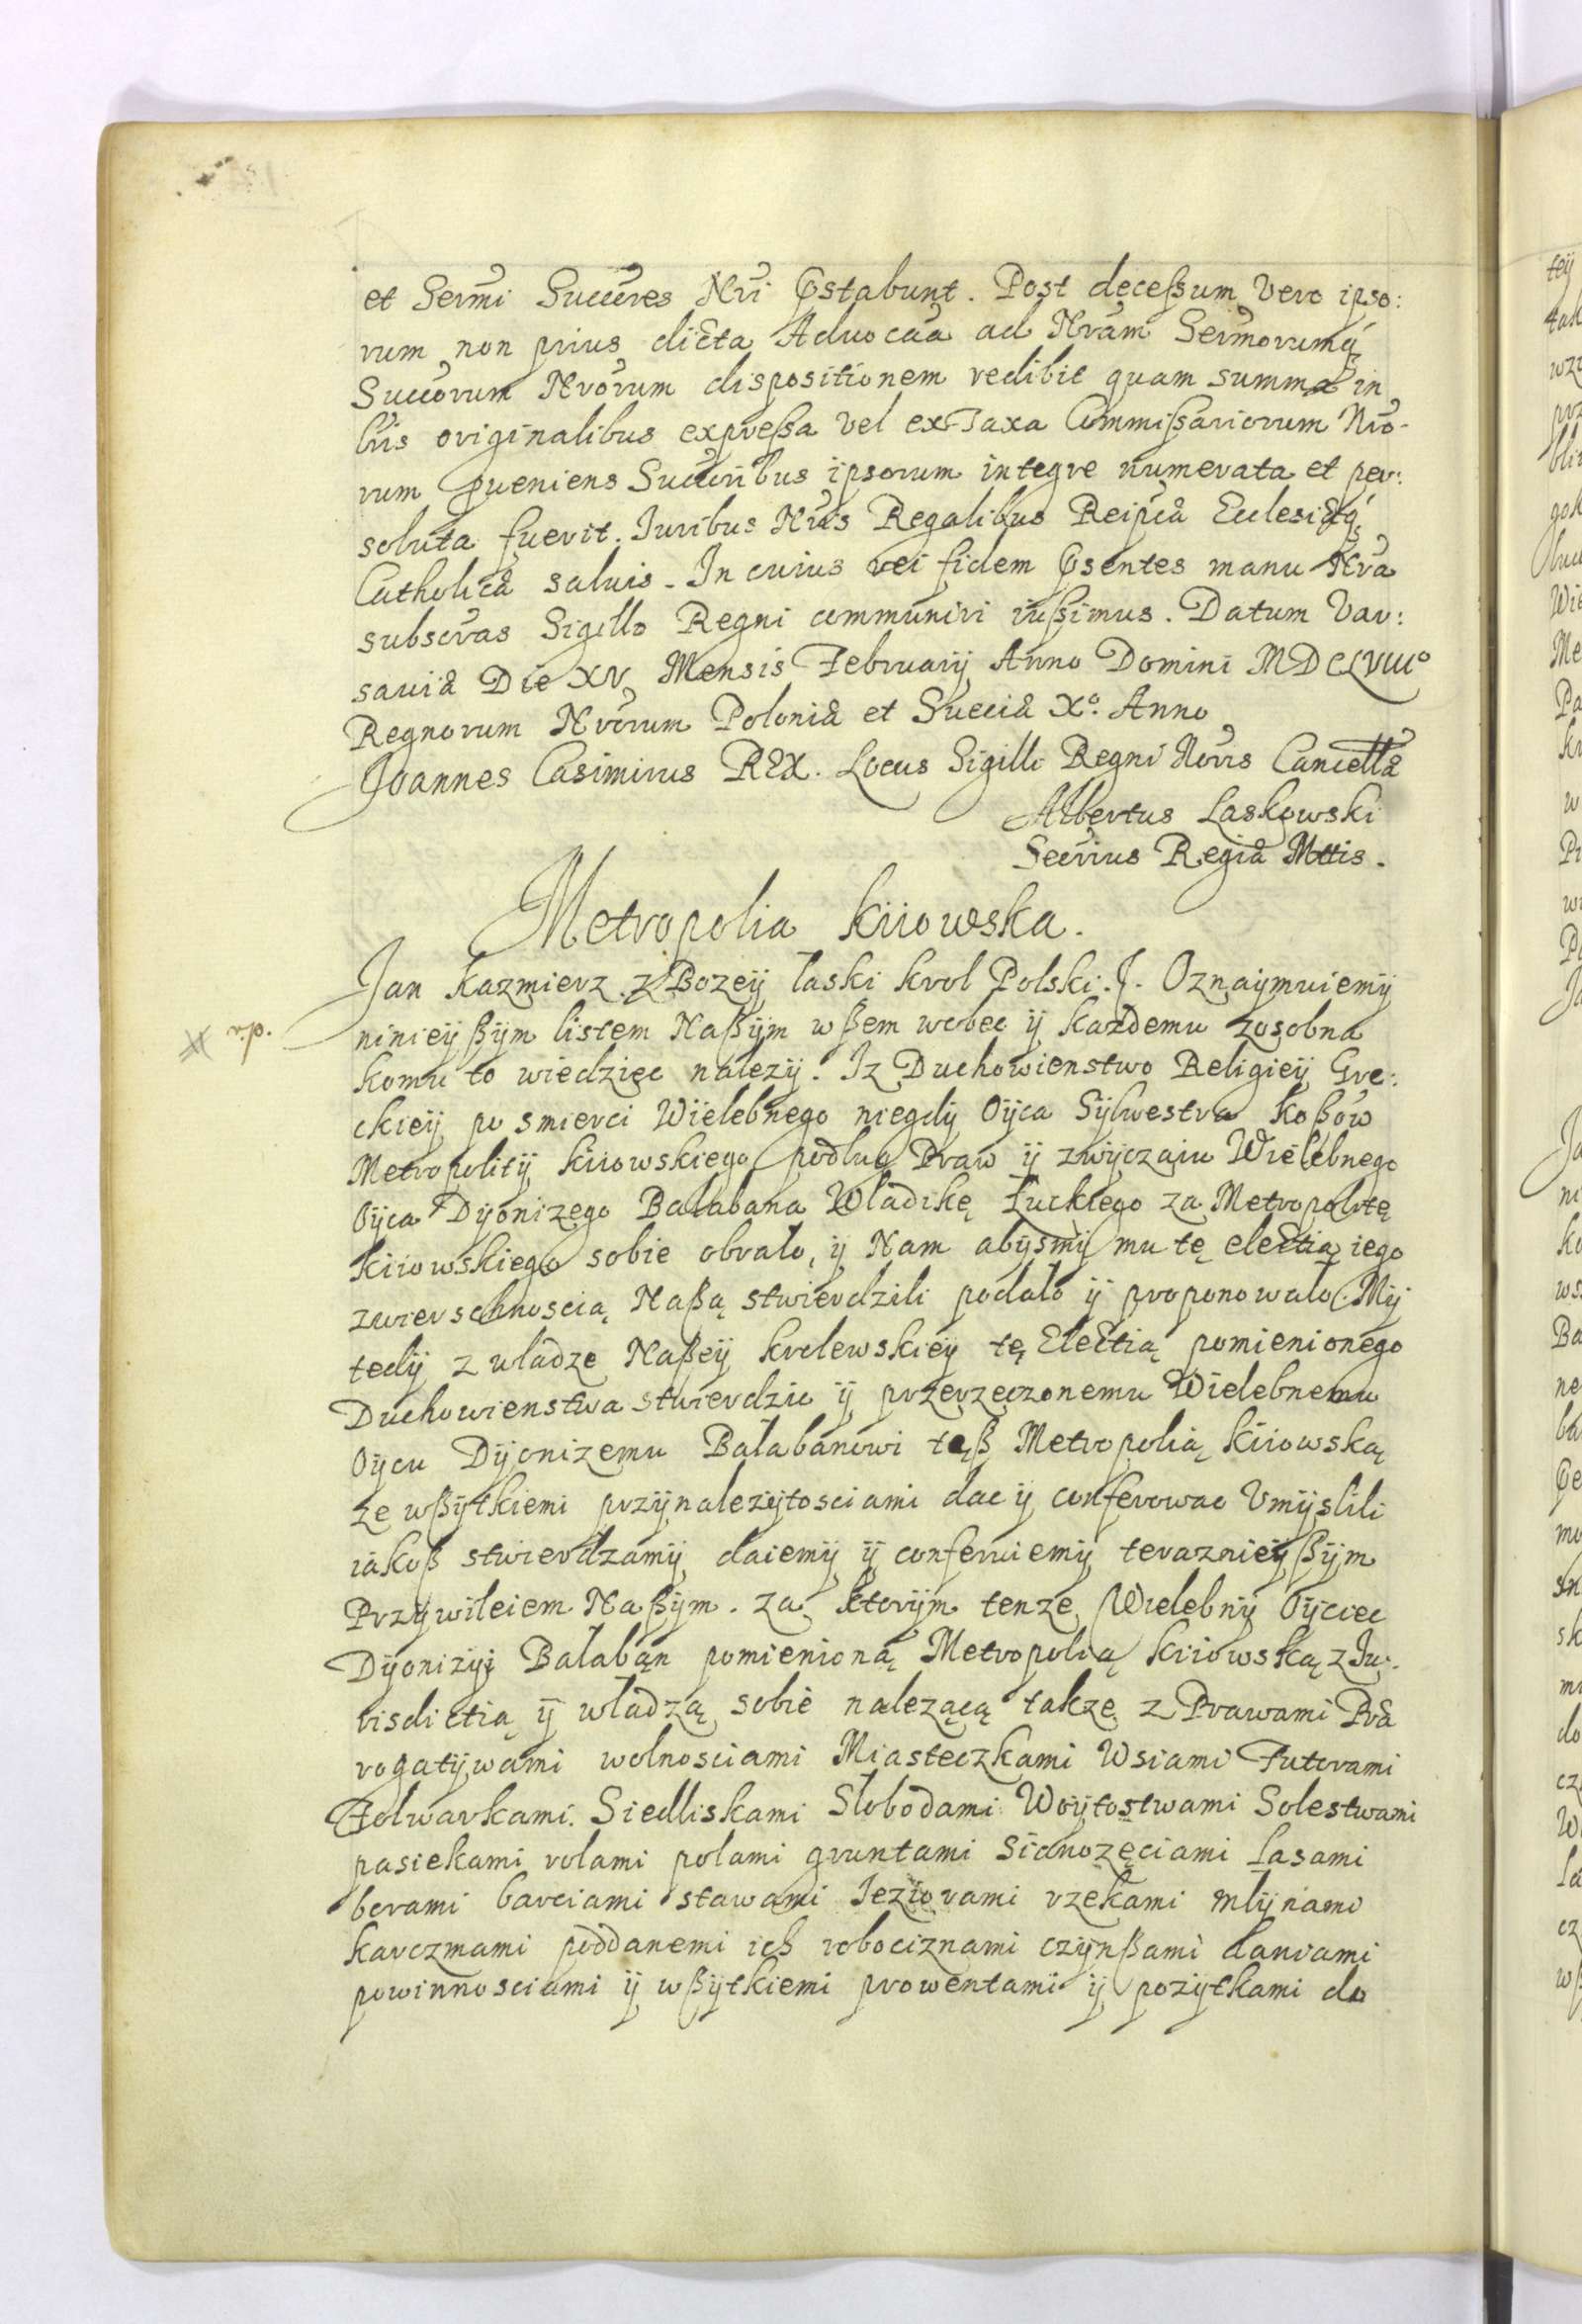 et Sermi Succres Nri Pstabunt. Post decessum Vero ipso:
rum non prius dicta Aduocaa ad Nram Sermorumq
Succorum Nrorum dispositionem redibit quam summa in
lris originalibus expressa vel ex Taxa Commissariorum Nro-
rum pueniens Succribus ipsorum integre numerata et per:
soluta fuerit. Iuribus Nris Regalibus Reipca Ecclesiæq
Catholicæ saluis. In cuius rei fidem Psentes manu Nra
subscras Sigillo Regni communiri iussimus. Datum Var:
sauiæ Die XV Mensis Februarij Anno Domini MDCLVIIIo
Regnorum Nrorum Poloniæ et Sueciæ Xo. Anno
Joannes Casimirus REX. Locus Sigilli Regni Noris Cancellæ
Albertus Laskowski
Secrius Regiæ Mttis.
Metropolia Kiiowska.
Jan Kazmierz z Bozeÿ łaski Krol Polski. J. Oznaÿmuiemÿ
r.p.
ninieÿßÿm listem Naßÿm wßem wobec ÿ Kazdemu zosobna
komu to wiedziec nalezÿ. Iz Duchowienstwo Religieÿ Gre:
ckieÿ po smierci Wielebnego niegdÿ Oÿca Sÿlwestra Koßow
Metropolitÿ Kiiowskiego podlug Praw ÿ zwÿczaiu Wielebnego
Oÿca Dÿonizego Bałabana Władikę Łuckiego za Metropolitę
Kiiowskiego sobie obrało, ÿ Nam abÿsmÿ mu tę electią iego
zwierschnoscią Naßą stwierdzili podało ÿ proponowało. Mÿ
tedÿ z władze Naßeÿ krolewskieÿ tę Electią pomienionego
Duchowienstwa stwierdzic ÿ przerzeczonemu Wielebnemu
Oÿcu Dÿonizemu Bałabanowi tęß Metropolią Kiiowską
ze wßÿtkiemi przÿnalezÿtosciami dac ÿ conferowac Vmÿslili
iakoß stwierdzamÿ, daiemÿ ÿ conferuiemÿ teraznieÿßÿm
Przÿwileiem Naßÿm. za ktorÿm tenze Wielebnÿ Oÿciec
Dÿonizÿi Bałaban pomienioną Metropolią Kiiowską z Iu:
risdictią ÿ władzą sobie nalezącą takze z Prawami Præ
rogatÿwami wolnosciami Miasteczkami Wsiami Futorami
Folwarkami. Siedliskami Słobodami Woÿtostwami Solestwami
pasiekami rolami polami gruntami Sianozęciami Lasami
borami barciami stawami Ieziorami rzekami młÿnami
karczmami poddanemi ich robociznami czÿnßami daniami
powinnosciami ÿ wßÿtkiemi prowentami ÿ pozÿtkami do